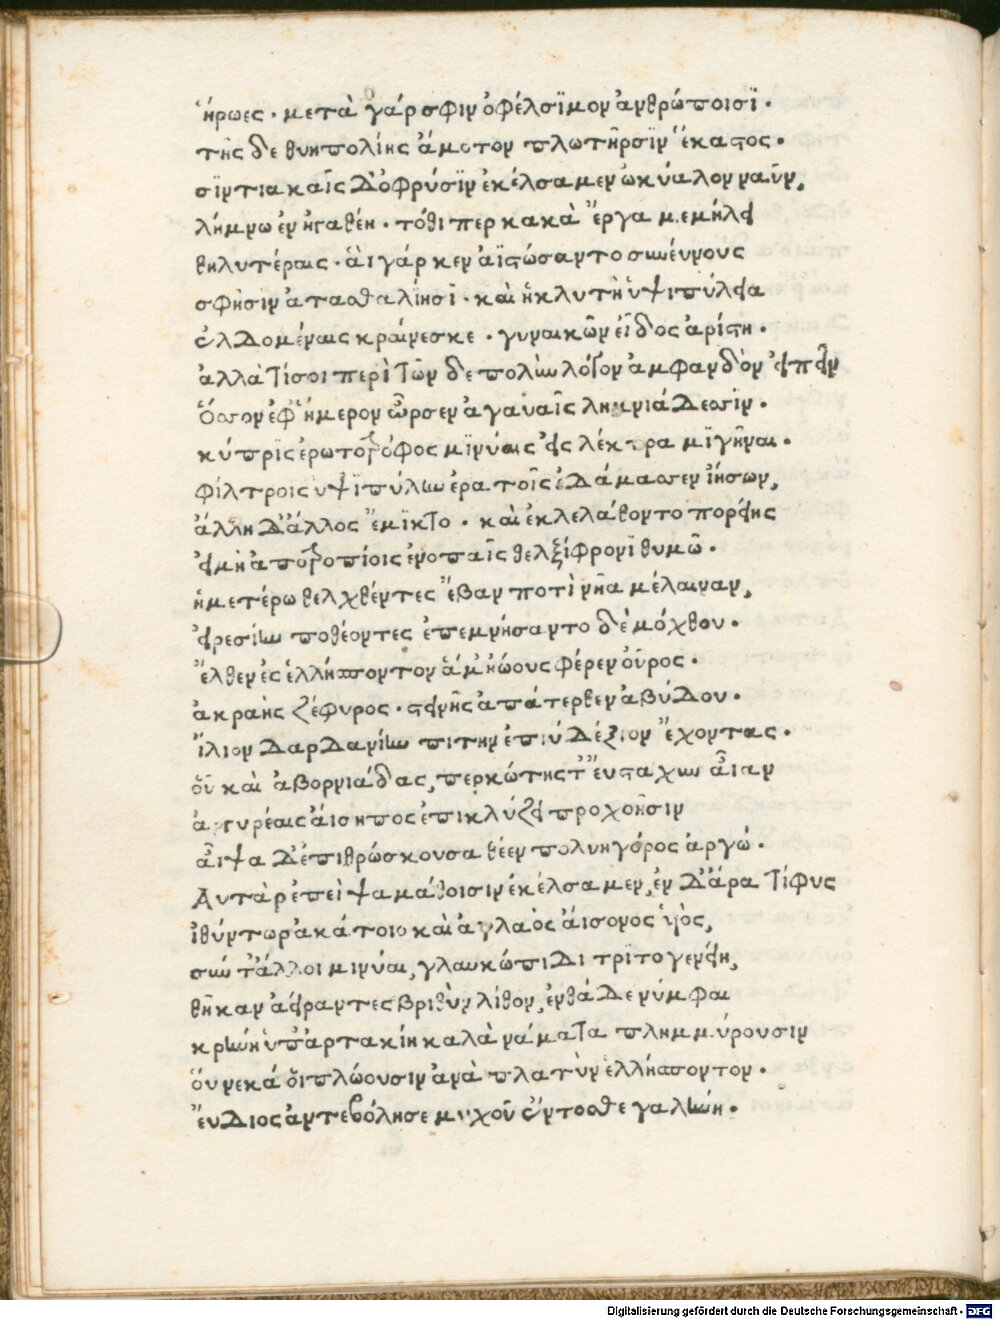 ἥρωες · μετὰ γάρ σφιν ὀφέλσϊμον ἀνθρώποισϊ ·
τῆς δε θυηπολίης ἄμοτον πλωτῆρσϊν ἕκαστος ·
σϊντιακαῖς δ' ὀφρύσϊν ἐκέλσαμεν ὠκύαλον ναῦν,
λήμνω ἐν ἠγαθέη · τόθι περ κακὰ ἔργα μεμήλει
θηλυτέραις · ἁι γάρ κεν ἀϊστώσαντο συνεύνους
σφῆσιν ἀτασθαλίησϊ · καὶ ἡ κλυτὴ ὑψιπύλεια
ἐλδομέναις κραίνεσκε · γυναικῶν εἶδος ἀρίστη ·
ἀλλὰ τί σοι περὶ τῶν δε πολὺν λόγον ἀμφανδὸν εἰπεῖν
ὅσσον ἐφ' ἥμερον ὦρσεν ἀγαυαῖς λημνιάδεσσϊν ·
κύπρϊς ἐρωτοτρόφος μϊνύαις εἰς λέκτρα μϊγῆναι ·
φίλτροις ὑψϊπύλην ἐρατοῖς ἐδάμασσεν ἰήσων,
ἄλλη δ' ἄλλος ἔμϊκτο · καὶ ἐκλελάθοντο πορείης
εἰ μὴ ἀποτροπίοις ἐνοπαῖς θελξίφρονϊ θυμῶ ·
ἡμετέρω θελχθέντες ἔβαν ποτὶ νῆα μέλαιναν,
εἰρεσίην ποθέοντες ἐπεμνήσαντο δὲ μόχθου ·
ἔλθεν ἐς ἑλλήσποντον ἅμ' ἠώους φέρεν οὖρος ·
ἀκραὴς ζέφυρος · στεινῆς ἀπάτερθεν ἀβύδου ·
ἴλιον δαρδανίην πιτηνἐπιύ δέξιον ἔχοντας ·
οὗ καὶ ἀβορνιάδας, περκώτης τ' ἔυσταχυν αἶαν
ἀργυρέαις ἄισηπος ἐπικλύζει προχοῆσιν
αἶψα δ' ἐπιθρώσκουσα θέεν πολυηγόρος ἀργώ ·
Αυτὰρ ἐπεὶ ψαμάθοισιν ἐκέλσαμεν, ἐν δ' ἄρα τίφυς
ἰθύντωρ ἀκάτοιο καὶ ἀγλαὸς ἄισονος ὑιὸς,
σύν τ' ἄλλοι μινύαι, γλαυκώπιδι τριτογενείη,
θῆκαν ἀείραντες βριθὺν λίθον, ἔνθά δε νύμφαι
κρήνη ὑπ' ἀρτακίη καλὰ νάματα πλημμύρουσιν
ὅυνεκά ὅι πλώουσιν ἀνὰ πλατὺν ἑλλήσποντον ·
ἔυδιος ἀντεβόλησε μυχοῦ ἔντοσθε γαλήνη ·